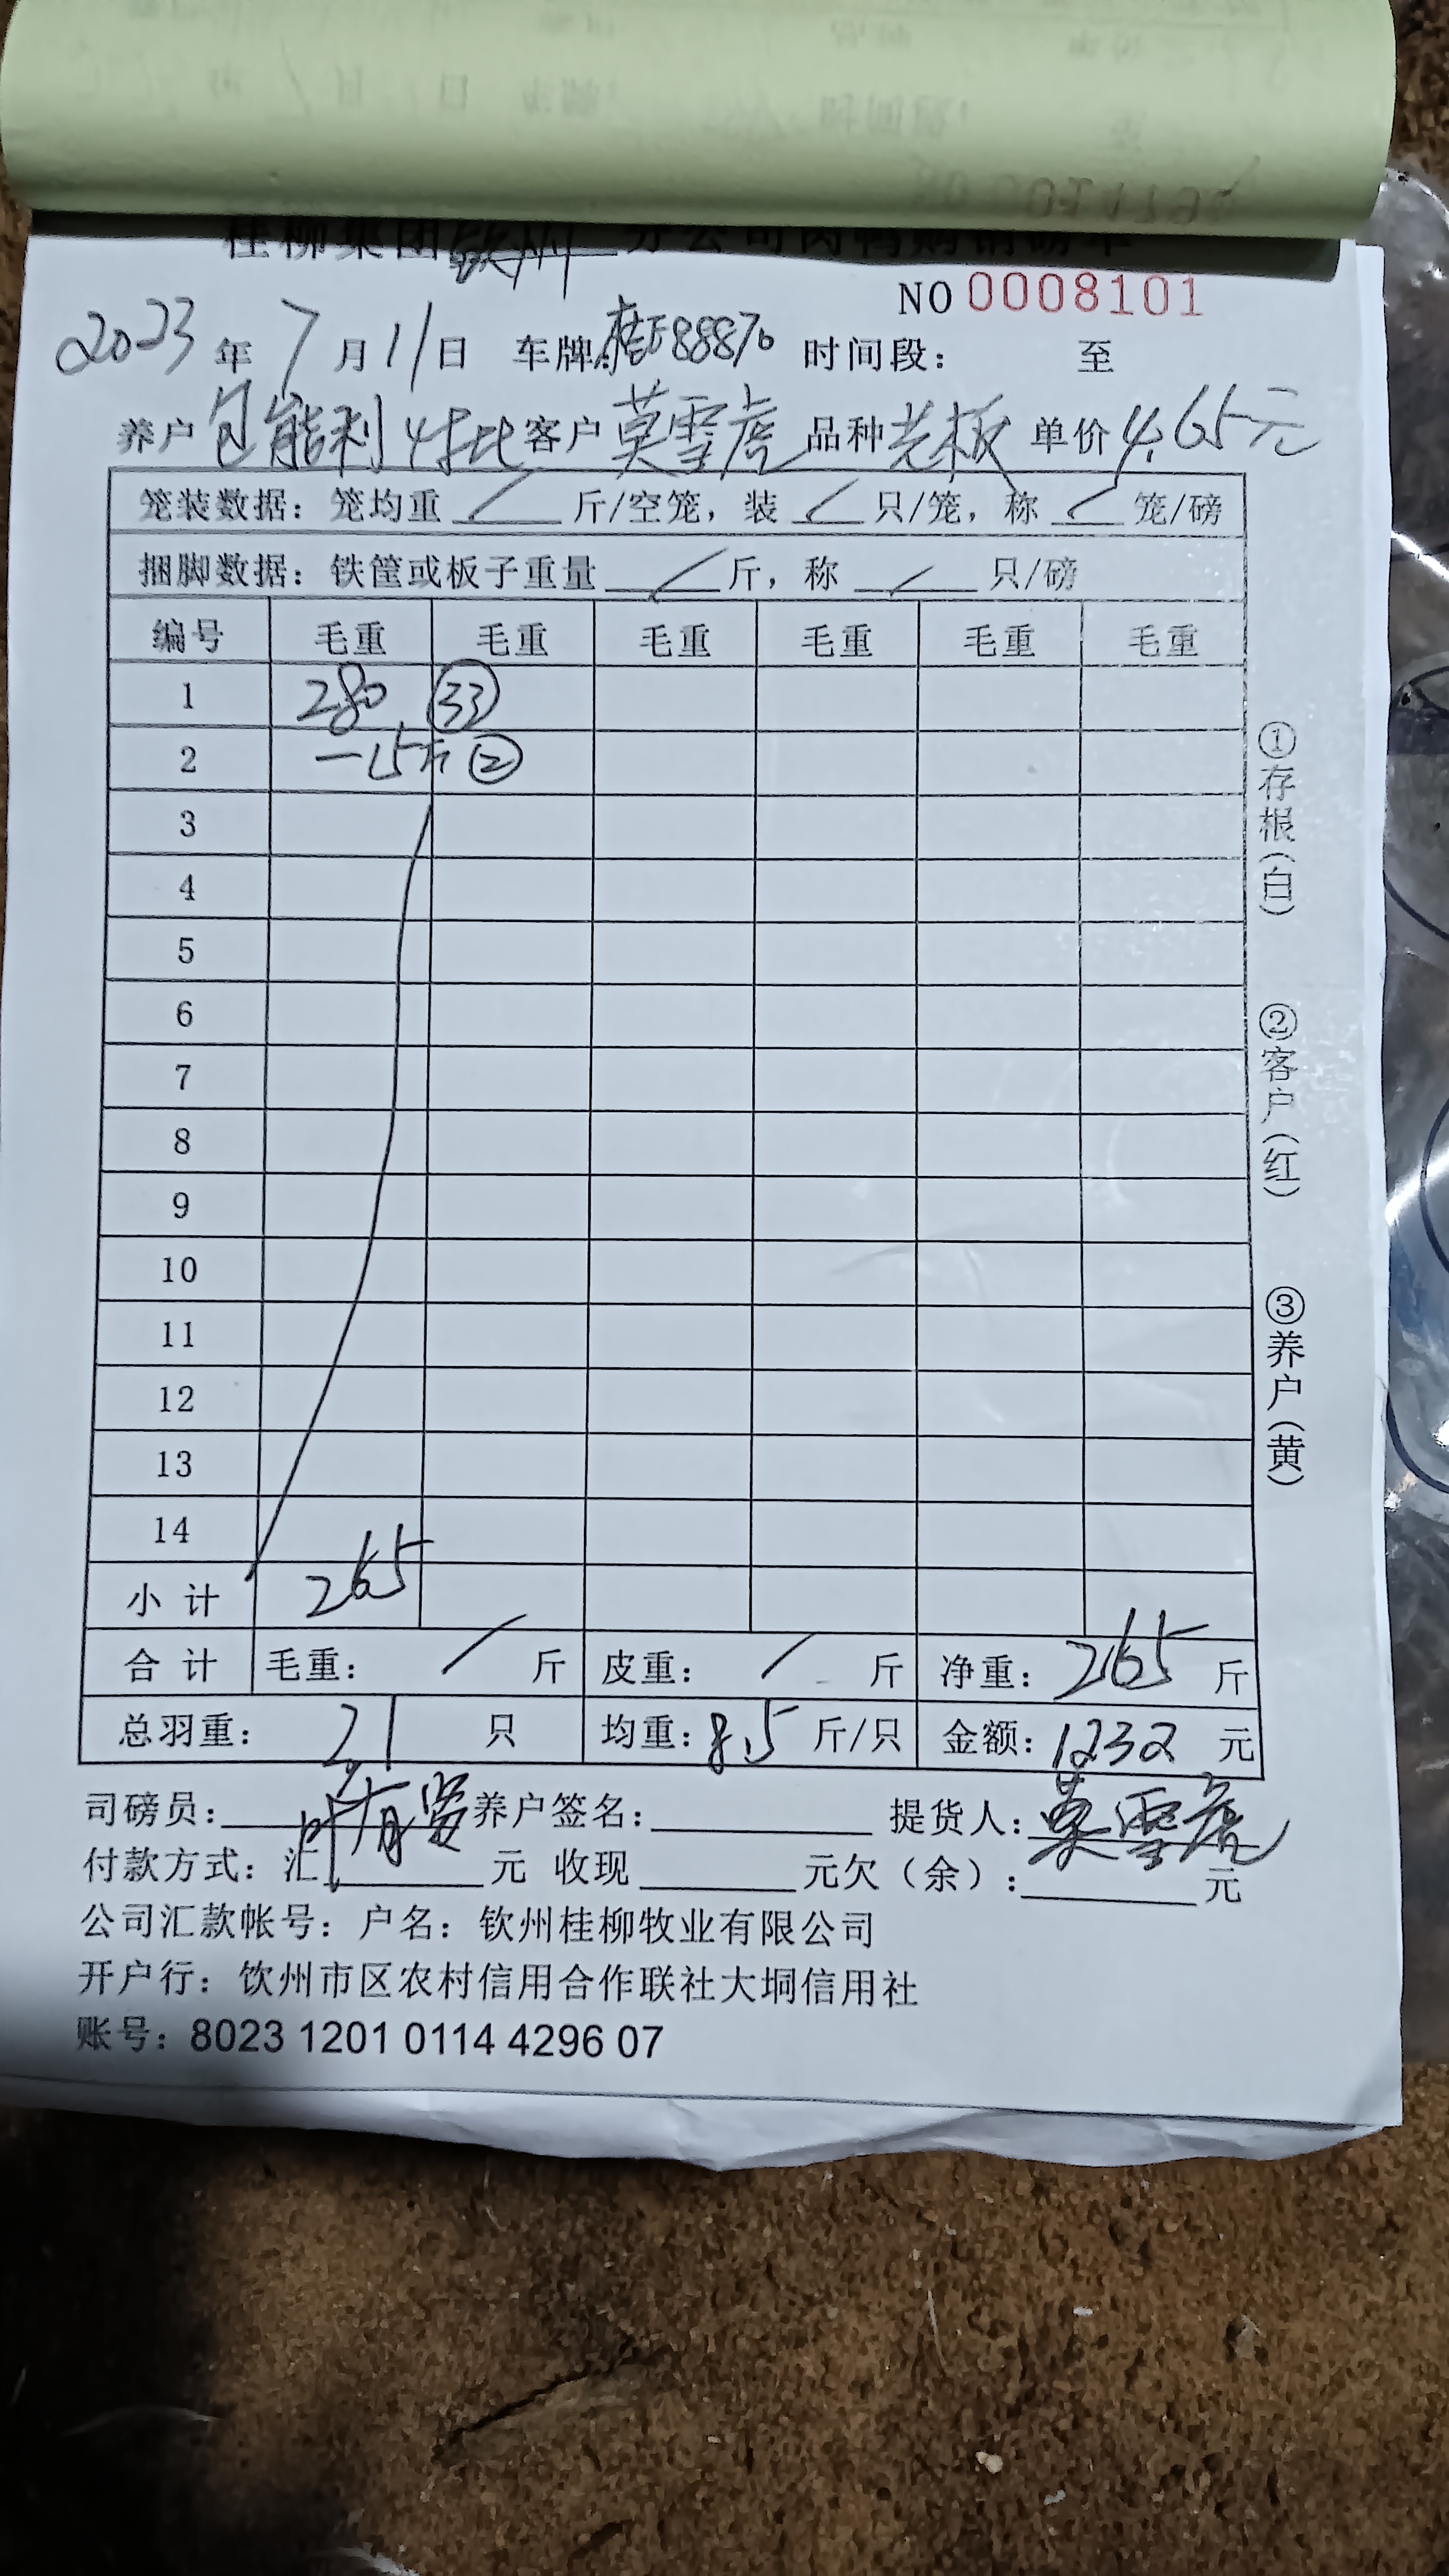 桂柳集团钦州分公司肉鸭购销磅单
NO 0008101
2023年7月11日 车牌:桂F88870 时间段: 至
养户 包能利 客户 莫雪虎 品种 老板 单价 4.65元
笼装数据：笼均重 / 斤/空笼，装 / 只/笼，称 / 笼/磅
捆脚数据：铁筐或板子重量 / 斤，称 / 只/磅
编号 毛重 毛重 毛重 毛重 毛重 毛重
1 280 33
2 -15斤 ②
3
4
5
6
7
8
9
10
11
12
13
14
小计 265
合计 毛重： / 斤 皮重： / 斤 净重：265 斤
总羽重： 31 只 均重：8.5 斤/只 金额：1232 元
司磅员: 叶有 养户签名: 提货人: 莫雪虎
付款方式：汇 元 收现 元欠（余）: 元
公司汇款帐号：户名：钦州桂柳牧业有限公司
开户行：钦州市区农村信用合作联社大垌信用社
账号：8023 1201 0114 4296 07
①存根(白)
②客户(红)
③养户(黄)